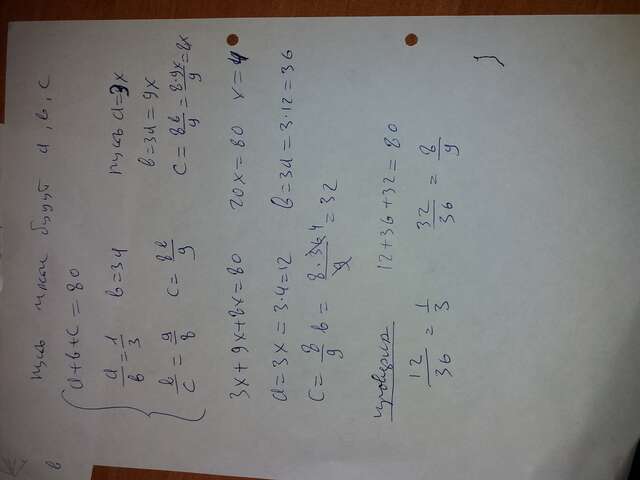 пусть числа будут a, b, c
a+b+c=80
a/b = 1/3 b=3a пусть a=3x
b=3a=9x
b/c = 9/8 c=8b/9 c=8b/9=8·9x/9=8x
3x+9x+8x=80 20x=80 x=4
a=3x=3·4=12 b=3a=3·12=36
c=8/9 b=8·36 4/9=32
проверка 12+36+32=80
12/36=1/3 32/36=8/9